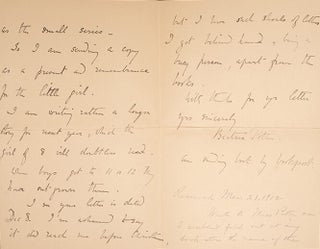 as the small series -
So I am sending a copy
as a present and remembrance
for the little girl.
I am writing rather a longer
story for next year, which the
girl of 8 will doubtless read.
When boys get to 11 or 12 they
have out grown them.
I see your letter is dated
Dec 8. I'm ashamed to say
it did reach me before Christmas,
but I have such shoals of letters
I got behind hand, being a
busy person, apart from the
books.
With thanks for yr letter
yrs sincerely
Beatrix Potter
am sending book by bookpost.